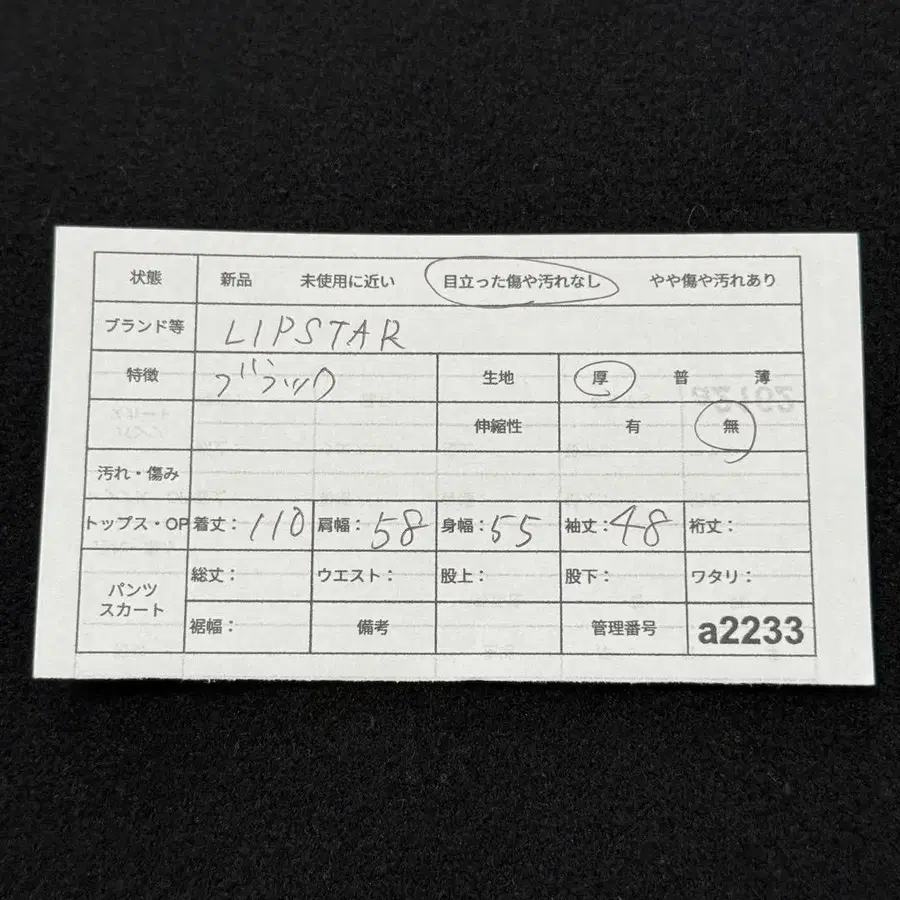 状態 新品 未使用に近い 目立った傷や汚れなし やや傷や汚れあり
ブランド等 LIPSTAR
特徴 ブラック 生地 厚 普 薄
伸縮性 有 無
汚れ・傷み
トップス・OP 着丈： 110 肩幅： 58 身幅： 55 袖丈： 48 裄丈：
パンツ
スカート
総丈： ウエスト： 股上： 股下： ワタリ：
裾幅： 備考 管理番号 a2233